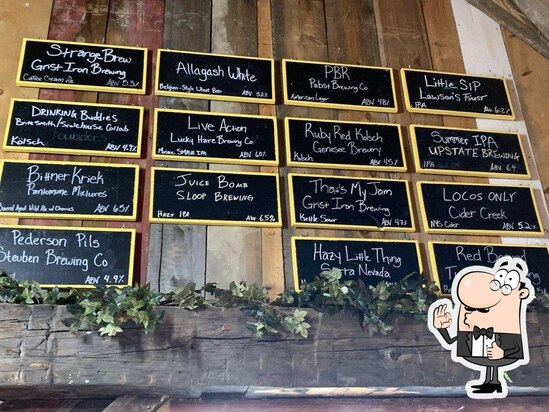 StrangeBrew
Grist Iron Brewing
Coffee Cream Ale ABV 5.3%
Allagash White
Belgian-Style Wheat Beer ABV 5.2%
PBR
Pabst Brewing Co
American Lager ABV 4.8%
Little SIP
Lawson's Finest
IPA ABV 6.2%
DRINKING Buddies
Kölsch ABV 4.9%
Live Action
Lucky Hare Brewing Co
Mosaic SMASH IPA ABV 6.0%
Ruby Red Kolsch
Genesee Brewery
Kolsch ABV 4.5%
Summer IPA
UPSTATE BREWING
IPA ABV 6.9
Bittner Kriek
Pantomime Mixtures
Barrel Aged Wild Ale w/ Cherries ABV 6.5%
JUICE BOMB
SLOOP BREWING
HAZY IPA ABV 6.5%
That's My Jam
Grist Iron Brewing
Kettle Sour ABV 4.7%
LOCOS ONLY
Cider Creek
NYS Cider ABV 5.2%
Pederson Pils
Steuben Brewing Co
ABV 4.9%
Hazy Little Thing
Sierra Nevada
Red